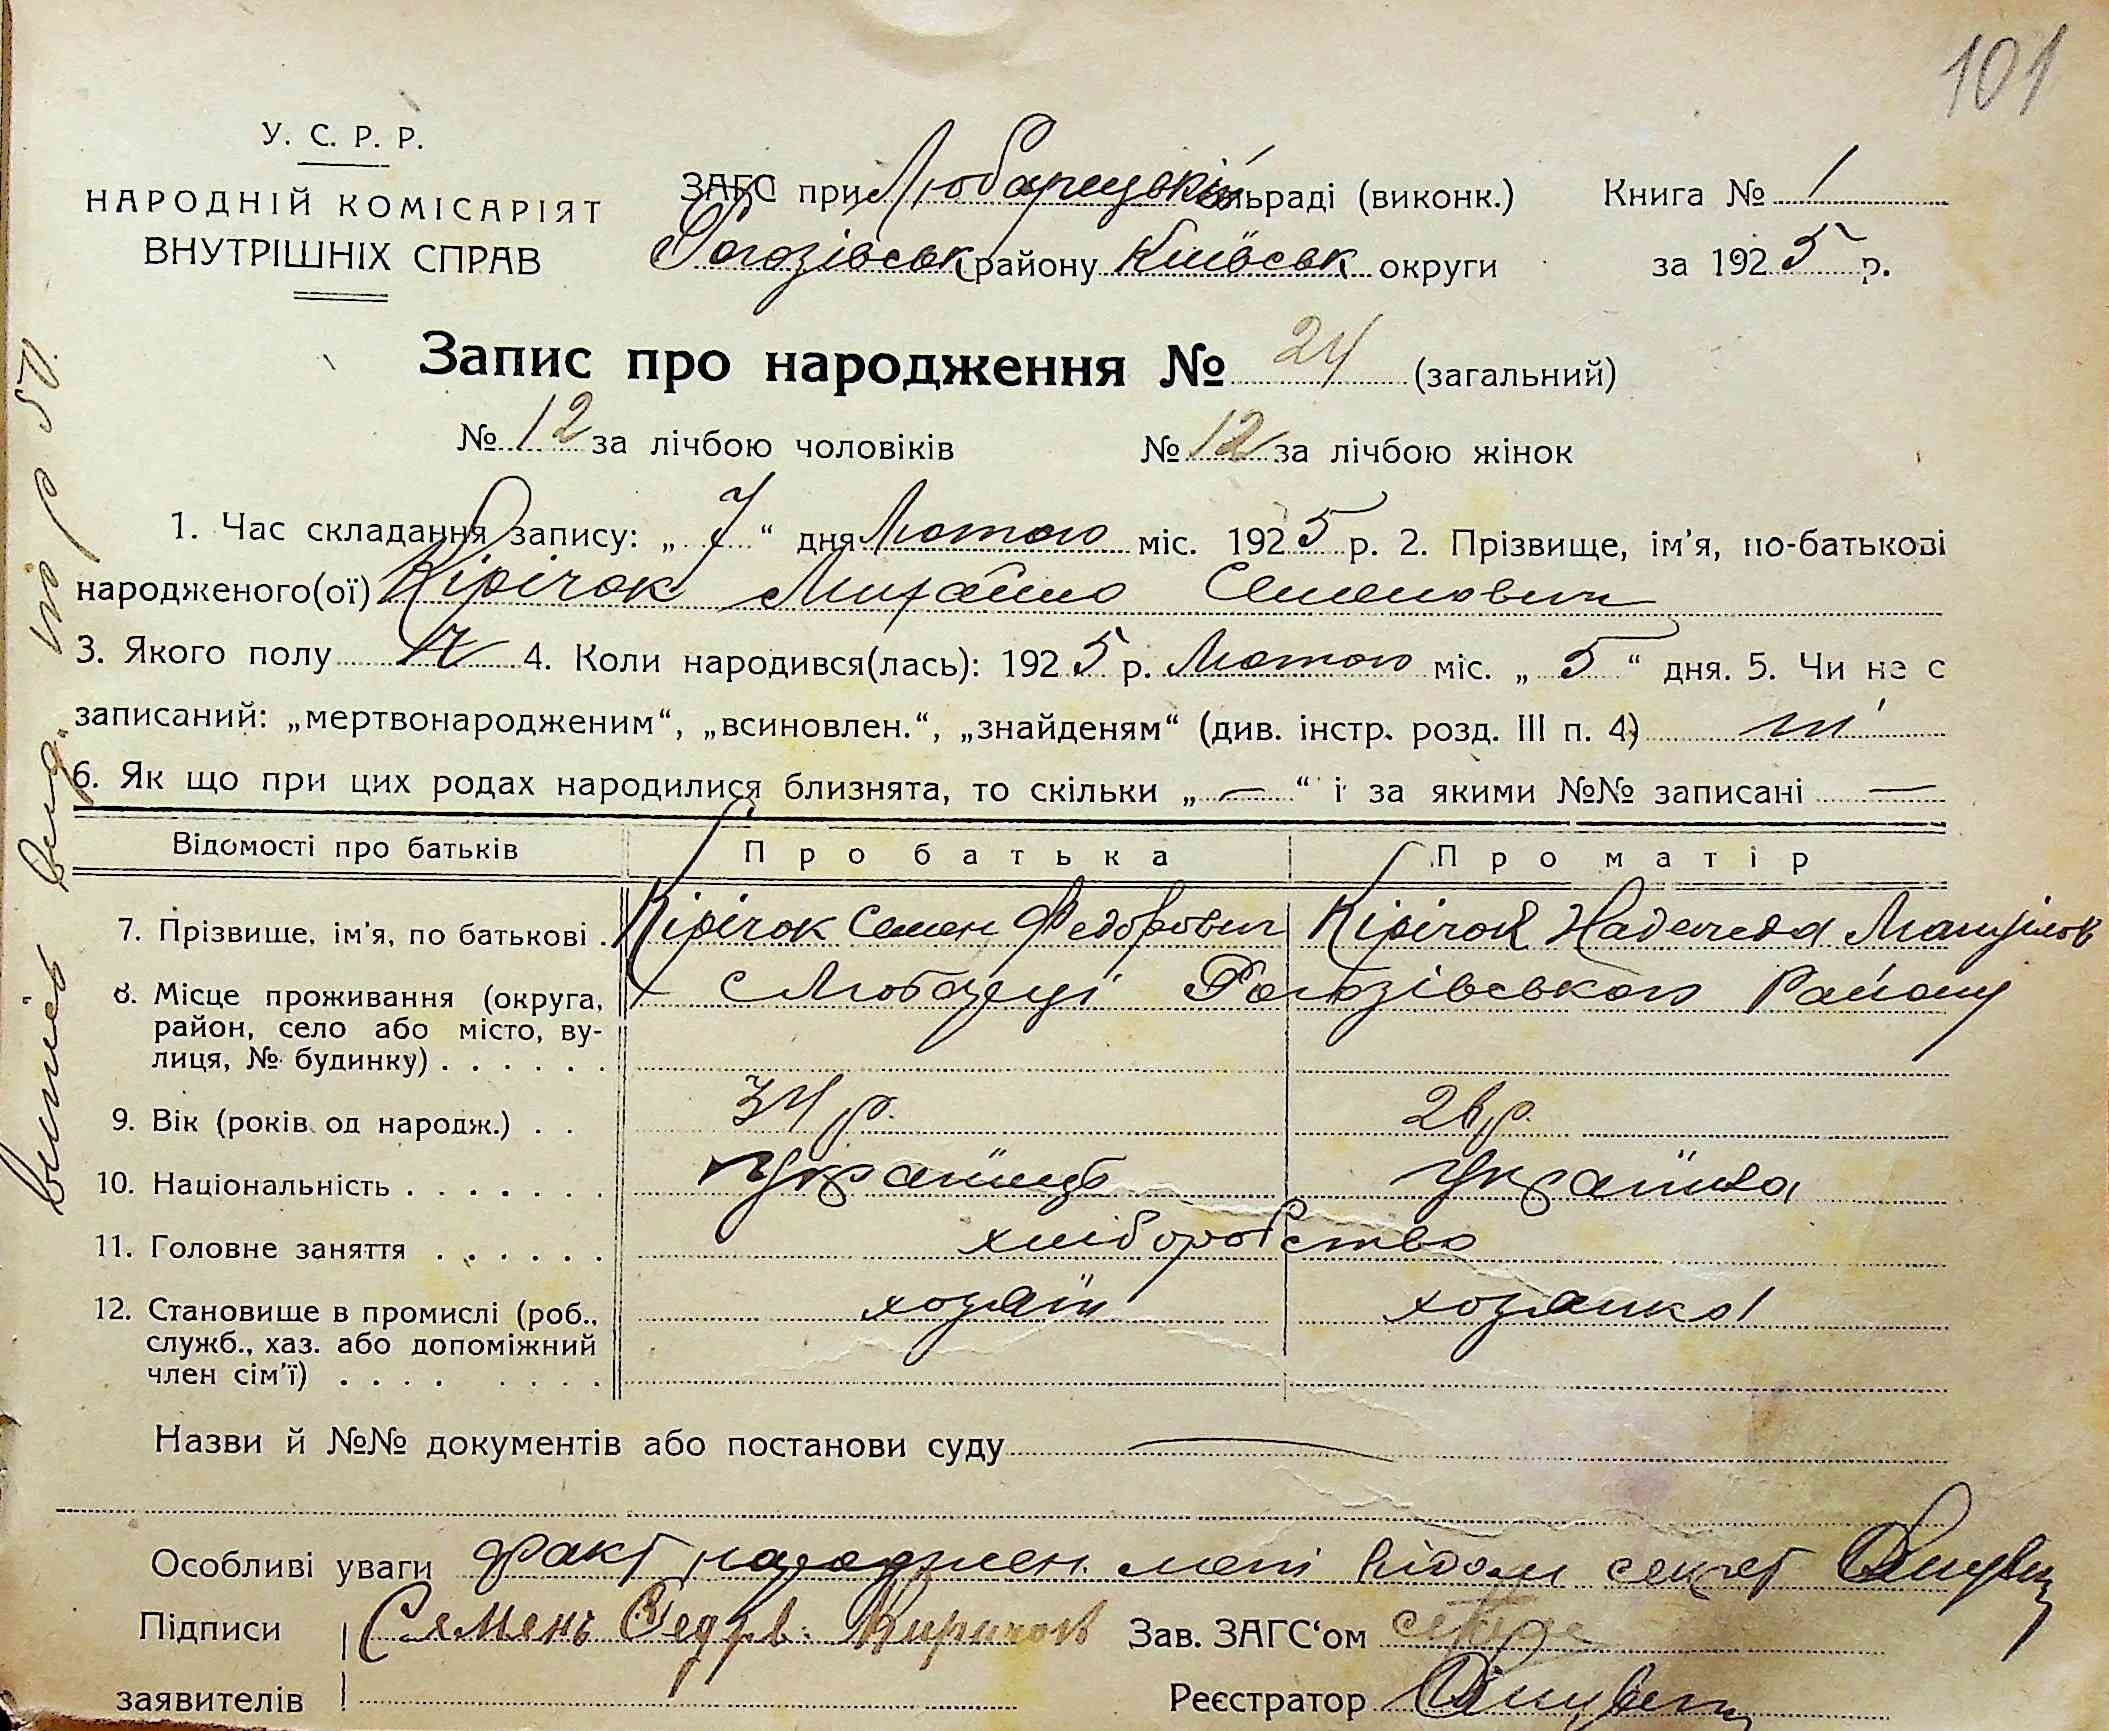 101
У. С. Р. Р.
НАРОДНІЙ КОМІСАРІЯТ
ВНУТРІШНІХ СПРАВ
ЗАГС при Любарецькій сільраді (виконк.)
Рогозівськ району Київськ округи
Книга № 1
за 1925 р.
Запис про народження № 24 (загальний)
№ 12 за лічбою чоловіків № 12 за лічбою жінок
1. Час складання запису: „ 7 “ дня Лютого міс. 1925 р. 2. Прізвище, ім'я, по-батькові
народженого(ої) Кірічок Михайло Семенович
3. Якого полу Ч 4. Коли народився(лась): 1925 р. Лютого міс. „ 5 “ дня. 5. Чи не є
записаний: „мертвонародженим“, „всиновлен.“, „знайденям“ (див. інстр. розд. III п. 4) ні
6. Як що при цих родах народилися близнята, то скільки „ — “ і за якими №№ записані —
Відомості про батьків Про батька Про матір
7. Прізвище, ім'я, по батькові . Кірічок Семен Федорович Кірічок Надежда
8. Місце проживання (округа, с Любарці Рогозівського Району
район, село або місто, ву-
лиця, № будинку) . . . . . .
9. Вік (років од народж.) . . 34 р. 26 р.
10. Національність . . . . . . . Українець Українка
11. Головне заняття . . . . . . хліборобство
12. Становище в промислі (роб., хозяїн хозяйка
служб., хаз. або допоміжний
член сім'ї) . . . . . . . .
Назви й №№ документів або постанови суду —
Особливі уваги факт народжен. мені відом секрет
Підписи Семень Федрв. Киричок Зав. ЗАГС'ом
заявителів Реєстратор